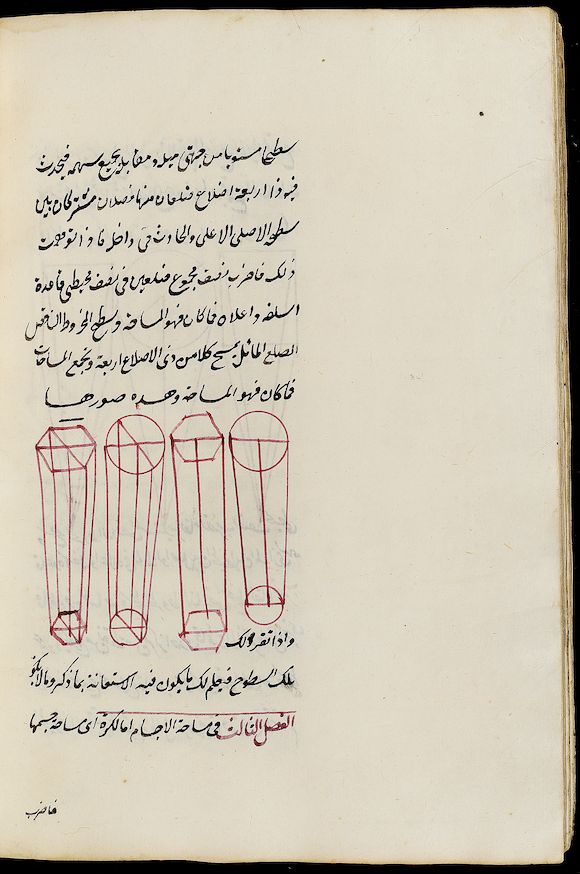 سطحا مستويا من جهتي ميله ومقابله يجمع سهمه فيحدث
فيه ذا اربعة اضلاع ضلعان منها فصلان مشتركان بين
سطحه الاصلى الاعلى والحادث فى داخل
ذلك فاضرب نصف مجموع ضلعين فى نصف محيطى قاعدة
اسلفه واعلاه فما كان فهو المساحة وسطح المخروط الناقص
المضلع المائل يمسح كلا من ذى الاضلاع اربعة ويجمع المساحات
فما كان فهو المساحة وهذه صورها
واذا تقرر لك
تلك السطوح فيعلم لك ما يكون فيه الاستعانة بما ذكر وما لا يكون
الفصل الثالث فى مساحة الاجسام اما الكرة اى مساحة جسمها
فاضرب